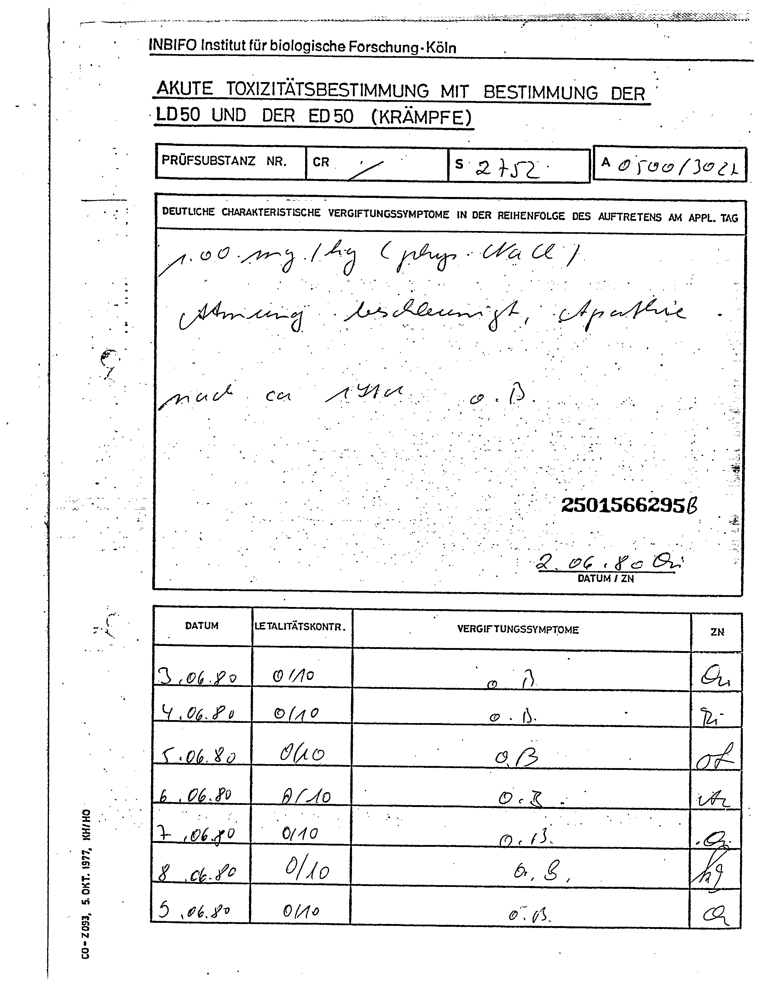 INBIFO Institut für biologische Forschung · Köln
AKUTE TOXIZITÄTSBESTIMMUNG MIT BESTIMMUNG DER
LD50 UND DER ED50 (KRÄMPFE)
PRÜFSUBSTANZ NR. CR / S 2752 A 0500/3021
DEUTLICHE CHARAKTERISTISCHE VERGIFTUNGSSYMPTOME IN DER REIHENFOLGE DES AUFTRETENS AM APPL. TAG
1.00 mg/kg (phys. NaCl)
Atmung beschleunigt, Apathie.
nach ca o.B.
2501566295B
2.06.80
DATUM / ZN
DATUM LETALITÄTSKONTR. VERGIFTUNGSSYMPTOME ZN
3.06.80 0/10 o.B.
4.06.80 0/10 o.B.
5.06.80 0/10 o.B
6.06.80 0/10 o.B.
7.06.80 0/10 o.B.
8.06.80 0/10 o.B.
9.06.80 0/10 o.B.
CO-Z093, 5. OKT. 1977, KH/HO